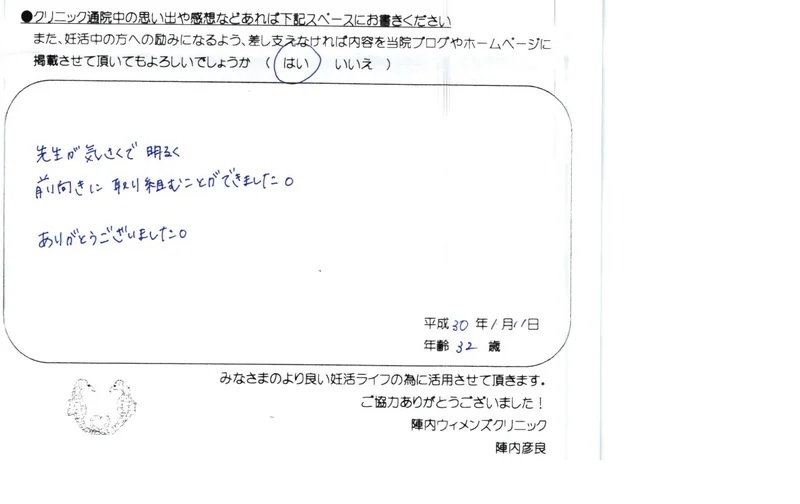 ●クリニック通院中の思い出や感想などあれば下記スペースにお書きください
また、妊活中の方への励みになるよう、差し支えなければ内容を当院ブログやホームページに
掲載させて頂いてもよろしいでしょうか （ はい いいえ ）
先生が気さくで 明るく
前向きに 取り組むことができました。
ありがとうございました。
平成30年1月11日
年齢 32 歳
みなさまのより良い妊活ライフの為に活用させて頂きます。
ご協力ありがとうございました！
陣内ウィメンズクリニック
陣内彦良